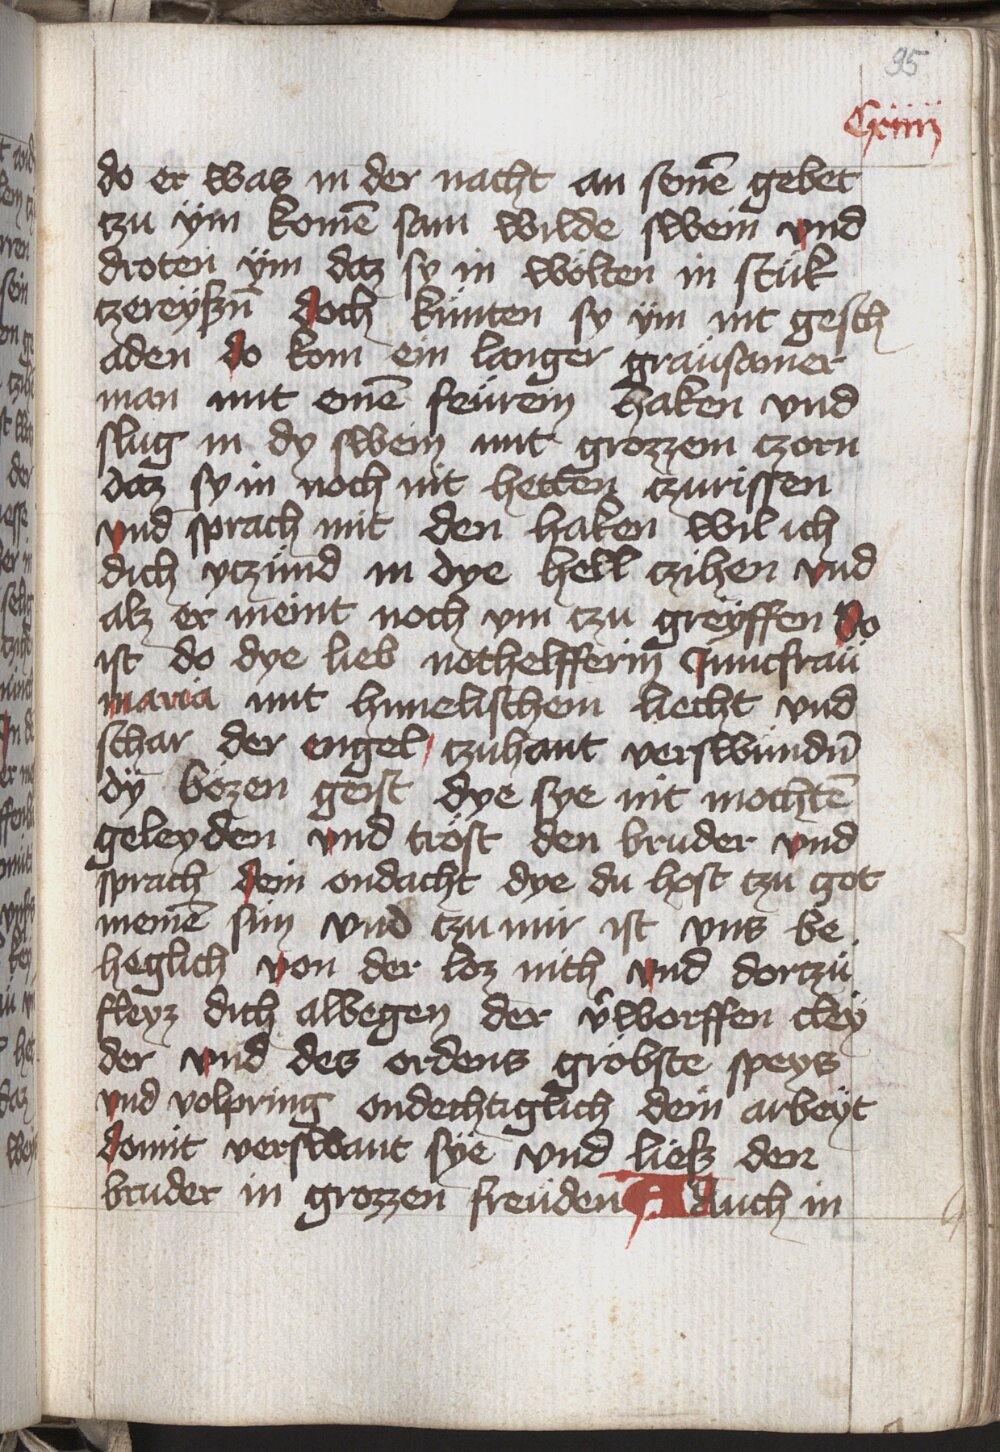 95
Cxiiij
do er waz in der nacht an seinē gebet
tzu ÿm komē sam wilde swein und
droten ÿm daz sy in wolten in stük
tzereÿszn̄ doch künten sy ÿm nit gesch
aden do kom ein langer graüsamer
man mit einē feürein haken vnd
slug in dy swein mit grozzem tzorn
daz sy in noch nit hetten tzurissen
vnd sprach mit den haken wil ich
dich ytzünd in dye hell tzihen vnd
alz er meint noch ym tzu greÿffen Do
ist do dye lieb nothelfferin Junckfraü
maria mit himelischem liecht vnd
schar der engel / tzuhant verswundn̄
dÿ bözen geist dye sye nit mochtē
geleyden vnd tröst den bruder vnd
sprach dein ondacht dye du host tzu got
meinē sün vnd tzu mir ist vns be
heglich von der loz nith vnd dortzü
fleyz dich albegen der v̂worffen cleÿ
der vnd des ordens gröbste speys
vnd volpring ondechtiglich dein arbeÿt
domit verswant sÿe vnd liesz den
bruder in grozzen freüden A Auch in